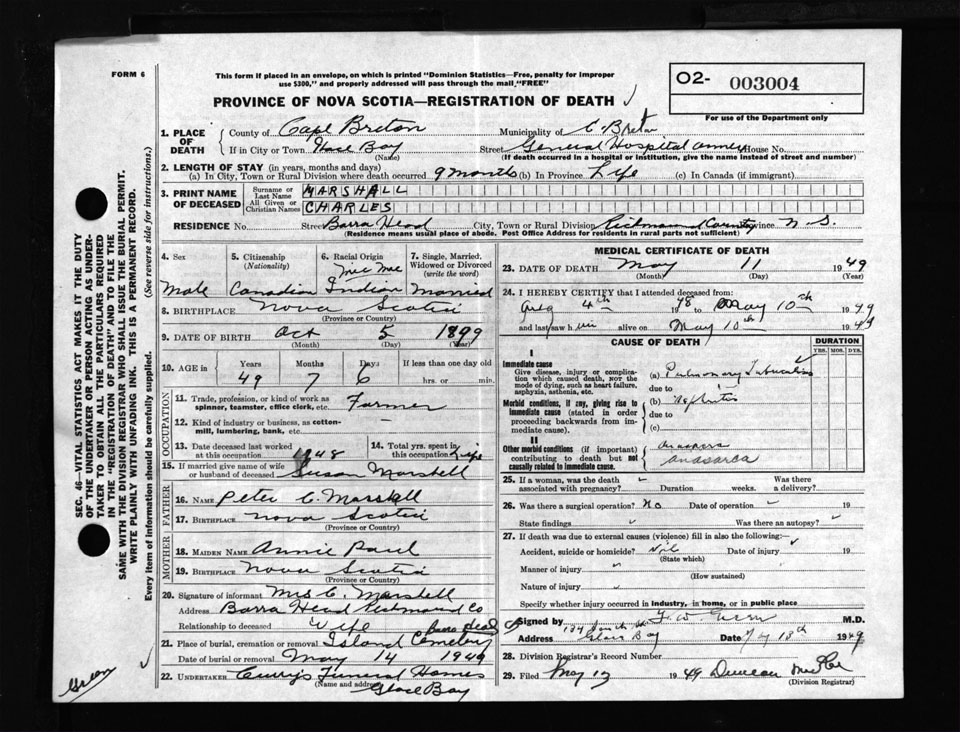 FORM 6
This form if placed in an envelope, on which is printed "Dominion Statistics—Free, penalty for improper
use $300," and properly addressed will pass through the mail "FREE"
O2- 003004
For use of the Department only
PROVINCE OF NOVA SCOTIA—REGISTRATION OF DEATH
1. PLACE OF DEATH County of Cape Breton Municipality of C. Breton
If in City or Town Glace Bay Street General Hospital House No.
(Name) (If death occurred in a hospital or institution, give the name instead of street and number)
2. LENGTH OF STAY (in years, months and days)
(a) In City, Town or Rural Division where death occurred 9 months (b) In Province Life (c) In Canada (if immigrant)
3. PRINT NAME OF DECEASED Surname or Last Name MARSHALL
All Given or Christian Names CHARLES
RESIDENCE No. Street Barra Head City, Town or Rural Division Richmond County N S.
(Residence means usual place of abode. Post Office Address for residents in rural parts not sufficient)
4. Sex 5. Citizenship (Nationality) 6. Racial Origin 7. Single, Married, Widowed or Divorced (write the word)
Male Canadian Mic Mac Indian Married
8. BIRTHPLACE Nova Scotia
(Province or Country)
9. DATE OF BIRTH Oct 5 1899
(Month) (Day) (Year)
10. AGE in Years Months Days If less than one day old
49 7 6 hrs. or min.
OCCUPATION
11. Trade, profession, or kind of work as spinner, teamster, office clerk, etc. Farmer
12. Kind of industry or business, as cotton-mill, lumbering, bank, etc. —
13. Date deceased last worked at this occupation 1948 14. Total yrs. spent in this occupation Life
15. If married give name of wife or husband of deceased Susan Marshall
FATHER
16. NAME Peter C. Marshall
17. BIRTHPLACE Nova Scotia
(Province or Country)
MOTHER
18. MAIDEN NAME Annie Paul
19. BIRTHPLACE Nova Scotia
(Province or Country)
20. Signature of informant Mrs C. Marshall
Address Barra Head Richmond Co
Relationship to deceased Wife
21. Place of burial, cremation or removal Island Cemetery Barra Head
Date of burial or removal May 14 1949
22. UNDERTAKER Curry's Funeral Homes
(Name and address) Glace Bay
MEDICAL CERTIFICATE OF DEATH
23. DATE OF DEATH May 11 1949
(Month) (Day) (Year)
24. I HEREBY CERTIFY that I attended deceased from:
Aug 4th 1948 to May 10th 1949
and last saw him alive on May 10th 1949
CAUSE OF DEATH DURATION
YRS. MOS. DYS.
I
Immediate cause
Give disease, injury or complication which caused death, NOT the mode of dying, such as heart failure, asphyxia, asthenia, etc.
(a) Pulmonary Tuberculosis
due to
Morbid conditions, if any, giving rise to immediate cause (stated in order proceeding backwards from immediate cause).
(b) Nephritis
due to
(c)
II
Other morbid conditions (if important) contributing to death but not causally related to immediate cause.
anasarca
25. If a woman, was the death associated with pregnancy? Duration weeks. Was there a delivery?
26. Was there a surgical operation? No Date of operation 19
State findings Was there an autopsy?
27. If death was due to external causes (violence) fill in also the following:—
Accident, suicide or homicide? Nil Date of injury 19
(State which)
Manner of injury
(How sustained)
Nature of injury
Specify whether injury occurred in industry, in home, or in public place
Signed by M.D.
Address Glace Bay Date May 13th 1949
28. Division Registrar's Record Number
29. Filed May 13 1949 Duncan
(Division Registrar)
SEC. 46—VITAL STATISTICS ACT MAKES IT THE DUTY
OF THE UNDERTAKER OR PERSON ACTING AS UNDER-
TAKER TO OBTAIN ALL THE PARTICULARS REQUIRED
IN THE "REGISTRATION OF DEATH" AND TO FILE THE
SAME WITH THE DIVISION REGISTRAR WHO SHALL ISSUE THE BURIAL PERMIT.
WRITE PLAINLY WITH UNFADING INK. THIS IS A PERMANENT RECORD.
Every item of information should be carefully supplied. (See reverse side for instructions.)